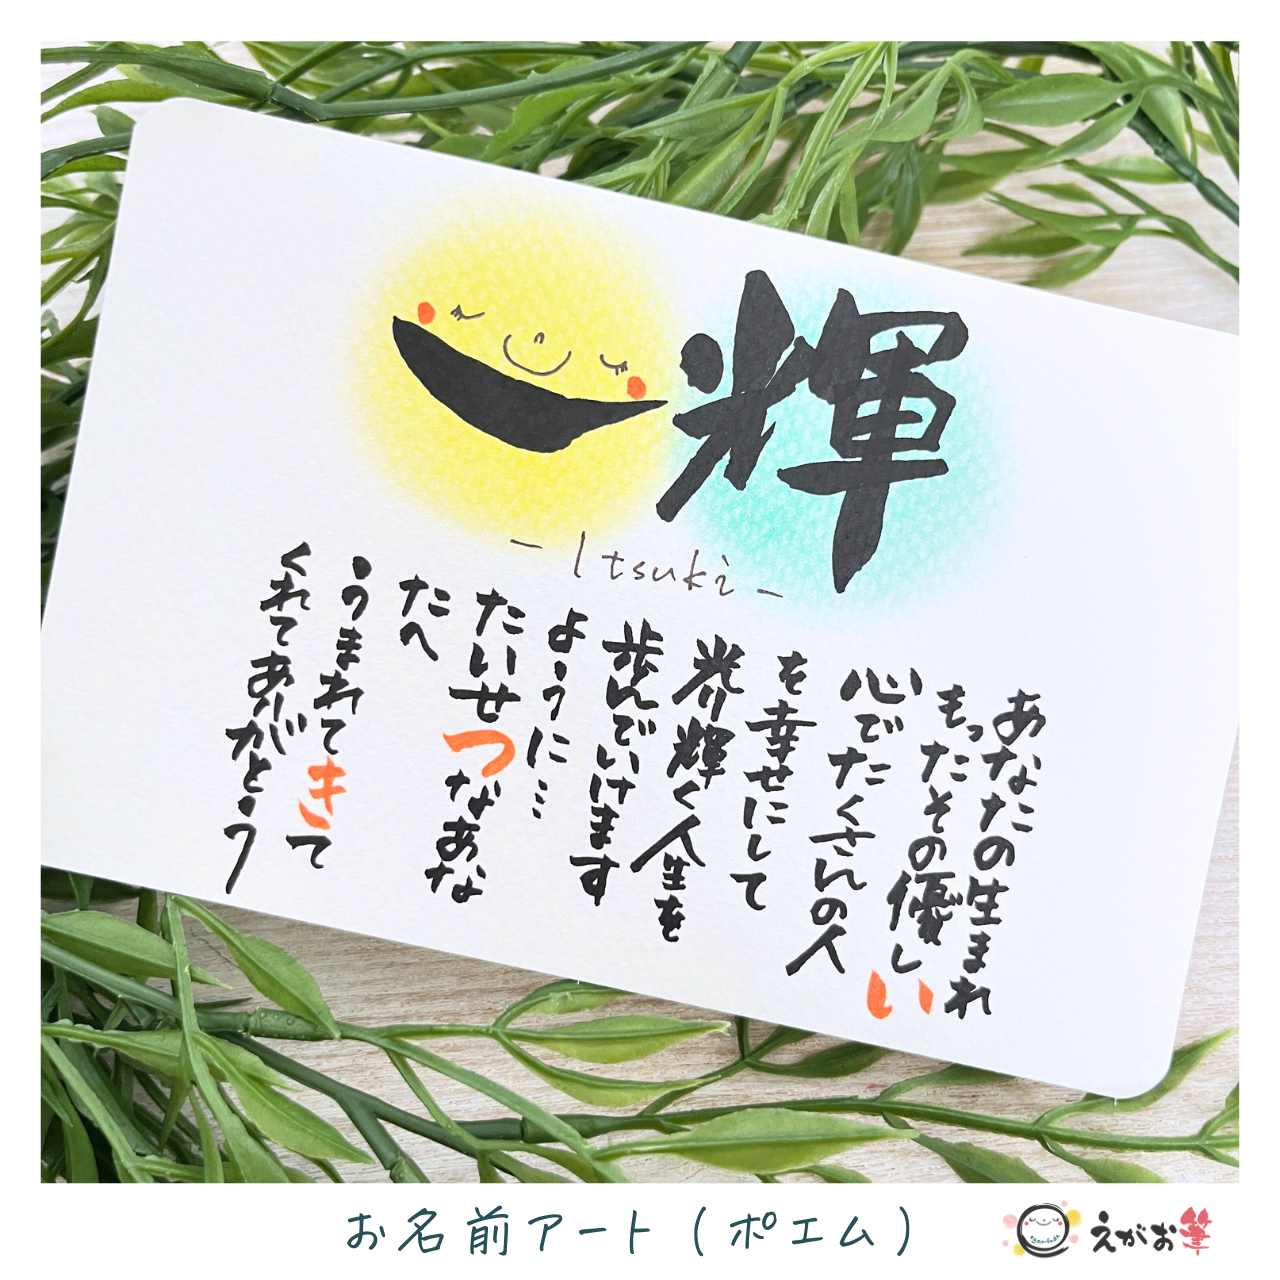 一輝
- Itsuki -
あなたの生まれ
もったその優しい
心でたくさんの人
を幸せにして
光り輝く人生を
歩んでいけます
ように…
たいせつなあな
たへ
うまれてきて
くれてありがとう
お名前アート（ポエム）
えがお筆